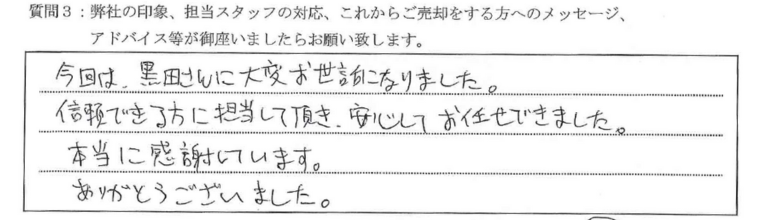 質問3：弊社の印象、担当スタッフの対応、これからご売却をする方へのメッセージ、
アドバイス等が御座いましたらお願い致します。
今回は、黒田さんに大変お世話になりました。
信頼できる方に担当して頂き、安心してお任せできました。
本当に感謝しています。
ありがとうございました。